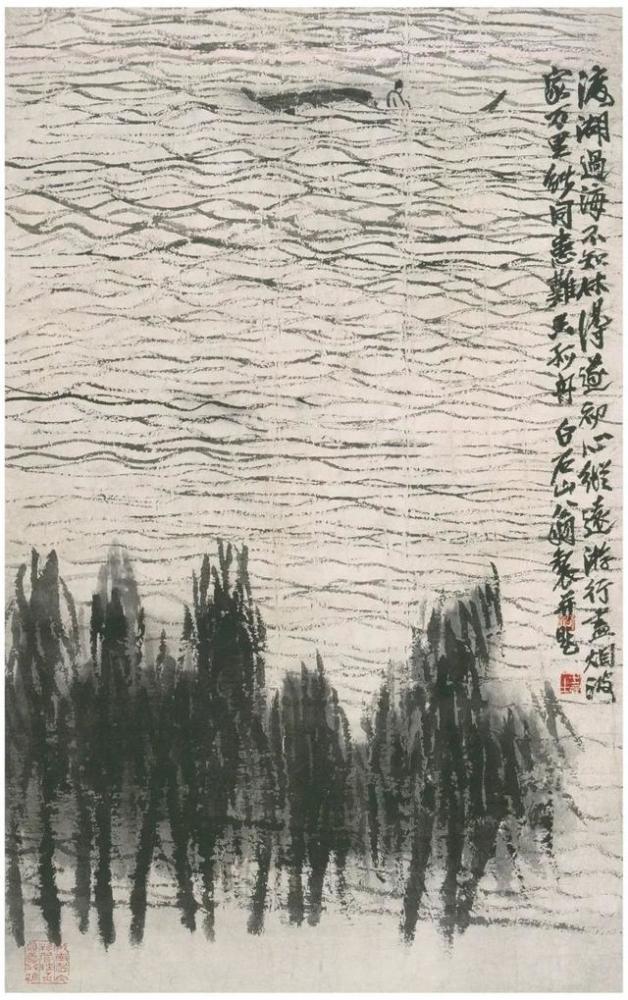 渡湖過海不知休得遂初心縱遠游行盡煙波
家万里能同患難只孤舟白石山翁製并題